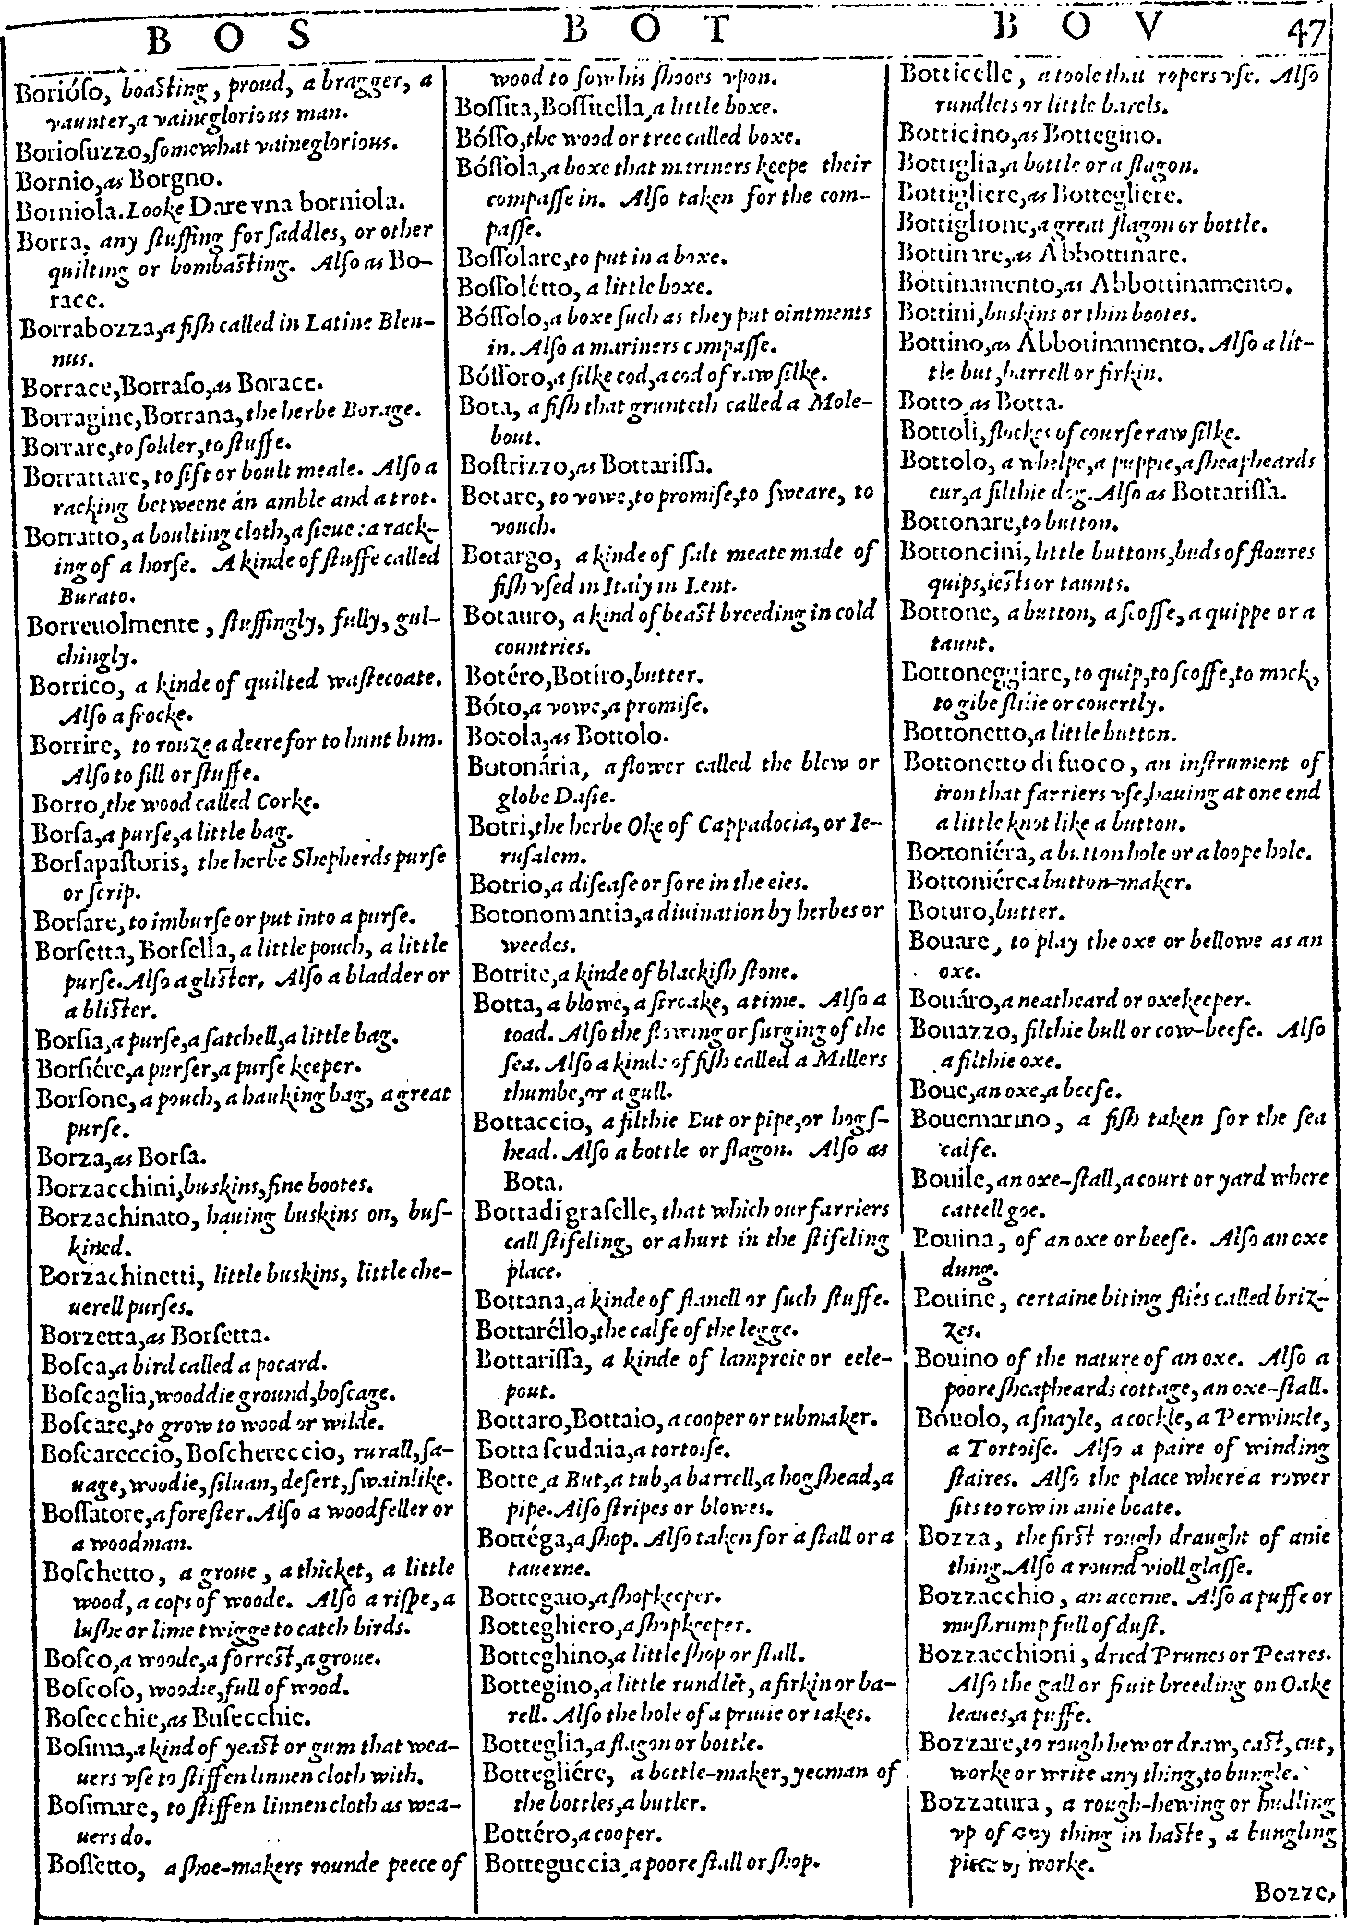 BOS BOT BOV 47
Borióſo, boaſting, proud, a bragger, a
vaunter, a vaineglorious man.
Borioſuzzo, ſomewhat vaineglorious.
Bornio, as Borgno.
Borniola. Looke Dare vna borniola.
Borra, any ſtuffing for ſaddles, or other
quilting or bombaſting. Alſo as Bo-
race.
Borrabozza, a fiſh called in Latine Blen-
nus.
Borrace, Borraſo, as Borace.
Borragine, Borrana, the herbe Borage.
Borrare, to ſolder, to ſtuffe.
Borrattare, to ſift or boult meale. Alſo a
racking betweene an amble and a trot.
Borratto, a boulting cloth, a ſieue: a rack-
ing of a horſe. A kinde of ſtuffe called
Burato.
Borreuolmente, ſtuffingly, fully, gul-
chingly.
Borrico, a kinde of quilted waſtecoate.
Alſo a frocke.
Borrire, to rouze a deere for to hunt him.
Alſo to fill or ſtuffe.
Borro, the wood called Corke.
Borſa, a purſe, a little bag.
Borſapaſtoris, the herbe Shepherds purſe
or ſcrip.
Borſare, to imburſe or put into a purſe.
Borſetta, Borſella, a little pouch, a little
purſe. Alſo a gliſter. Alſo a bladder or
a bliſter.
Borſia, a purſe, a ſatchell, a little bag.
Borſiére, a purſer, a purſe keeper.
Borſone, a pouch, a hauking bag, a great
purſe.
Borza, as Borſa.
Borzacchini, buskins, fine bootes.
Borzachinato, hauing buskins on, buſ-
kined.
Borzachinetti, little buskins, little che-
uerell purſes.
Borzetta, as Borſetta.
Boſca, a bird called a pocard.
Boſcaglia, wooddie ground, boſcage.
Boſcare, to grow to wood or wilde.
Boſcareccio, Boſchereccio, rurall, ſa-
uage, woodie, ſiluan, deſert, ſwainlike.
Boſſatore, a foreſter. Alſo a woodfeller or
a woodman.
Boſchetto, a groue, a thicket, a little
wood, a cops of woode. Alſo a riſpe, a
luſhe or lime twigge to catch birds.
Boſco, a woode, a forreſt, a groue.
Boſcoſo, woodie, full of wood.
Boſecchie, as Buſecchie.
Boſima, a kind of yeaſt or gum that wea-
uers vſe to ſtiffen linnen cloth with.
Boſimare, to ſtiffen linnen cloth as wea-
uers do.
Boſſetto, a ſhoe-makers rounde peece of
wood to ſow his ſhooes vpon.
Boſſita, Boſſitella, a little boxe.
Bóſſo, the wood or tree called boxe.
Bóſſola, a boxe that mariners keepe their
compaſſe in. Alſo taken for the com-
paſſe.
Boſſolare, to put in a boxe.
Boſſolétto, a little boxe.
Bóſſolo, a boxe ſuch as they put ointments
in. Alſo a mariners compaſſe.
Bóſſoro, a ſilke cod, a cod of raw ſilke.
Bota, a fiſh that grunteth called a Mole-
bout.
Boſtrizzo, as Bottariſſa.
Botare, to vowe, to promiſe, to ſweare, to
vouch.
Botargo, a kinde of ſalt meate made of
fiſh vſed in Italy in Lent.
Botauro, a kind of beaſt breeding in cold
countries.
Botéro, Botiro, butter.
Bóto, a vowe, a promiſe.
Botola, as Bottolo.
Botonária, a flower called the blew or
globe Daſie.
Botri, the herbe Oke of Cappadocia, or Ie-
ruſalem.
Botrio, a diſeaſe or ſore in the eies.
Botonomantia, a diuination by herbes or
weedes.
Botrite, a kinde of blackiſh ſtone.
Botta, a blowe, a ſtroake, a time. Alſo a
toad. Alſo the flowing or ſurging of the
ſea. Alſo a kinde of fiſh called a Millers
thumbe, or a gull.
Bottaccio, a filthie But or pipe, or hogſ-
head. Alſo a bottle or flagon. Alſo as
Bota.
Botta di graſelle, that which our farriers
call ſtifeling, or a hurt in the ſtifeling
place.
Bottana, a kinde of flanell or ſuch ſtuffe.
Bottaréllo, the calfe of the legge.
Bottariſſa, a kinde of lampreie or eele-
pout.
Bottaro, Bottaio, a cooper or tubmaker.
Botta ſcudaia, a tortoiſe.
Botte, a But, a tub, a barrell, a hogſhead, a
pipe. Alſo ſtripes or blowes.
Bottéga, a ſhop. Alſo taken for a ſtall or a
tauerne.
Bottegaio, a ſhopkeeper.
Botteghiero, a ſhopkeeper.
Botteghino, a little ſhop or ſtall.
Bottegino, a little rundlet, a firkin or ba-
rell. Alſo the hole of a priuie or iakes.
Botteglia, a flagon or bottle.
Bottegliére, a bottle-maker, yeoman of
the bottles, a butler.
Bottéro, a cooper.
Botteguccia, a poore ſtall or ſhop.
Botticelle, a toole that ropers vſe. Alſo
rundlets or little barels.
Botticino, as Bottegino.
Bottiglia, a bottle or a flagon.
Bottigliere, as Bottegliere.
Bottiglione, a great flagon or bottle.
Bottinare, as Abbottinare.
Bottinamento, as Abbottinamento.
Bottini, buskins or thin bootes.
Bottino, as Abbotinamento. Alſo a lit-
tle but, barrell or firkin.
Botto, as Botta.
Bottoli, flockes of courſe raw ſilke.
Bottolo, a whelpe, a puppie, a ſheapheards
cur, a filthie dog. Alſo as Bottariſſa.
Bottonare, to button.
Bottoncini, little buttons, buds of floures
quips, ieſts or taunts.
Bottone, a button, a ſcoffe, a quippe or a
taunt.
Bottoneggiare, to quip, to ſcoffe, to mock,
to gibe ſlilie or couertly.
Bottonetto, a little button.
Bottonetto di fuoco, an inſtrument of
iron that farriers vſe, hauing at one end
a little knot like a button.
Bottoniéra, a button hole or a loope hole.
Bottoniére a button-maker.
Boturo, butter.
Bouare, to play the oxe or bellowe as an
oxe.
Bouáro, a neatheard or oxekeeper.
Bouazzo, filthie bull or cow-beefe. Alſo
a filthie oxe.
Boue, an oxe, a beefe.
Bouemarino, a fiſh taken for the ſea
calfe.
Bouile, an oxe-ſtall, a court or yard where
cattell goe.
Bouina, of an oxe or beefe. Alſo an oxe
dung.
Bouine, certaine biting flies called briz-
zes.
Bouino of the nature of an oxe. Alſo a
poore ſheapheards cottage, an oxe-ſtall.
Bóuolo, a ſnayle, a cockle, a Perwincle,
a Tortoiſe. Alſo a paire of winding
ſtaires. Alſo the place where a rower
ſits to row in anie boate.
Bozza, the firſt rough draught of anie
thing. Alſo a round violl glaſſe.
Bozzacchio, an acorne. Alſo a puffe or
muſhrump full of duſt.
Bozzacchioni, dried Prunes or Peares.
Alſo the gall or fruit breeding on Oake
leaues, a puffe.
Bozzare, to rough hew or draw, caſt, cut,
worke or write any thing, to bungle.
Bozzatura, a rough-hewing or hudling
vp of any thing in haſte, a bungling
piece of worke.
Bozze,